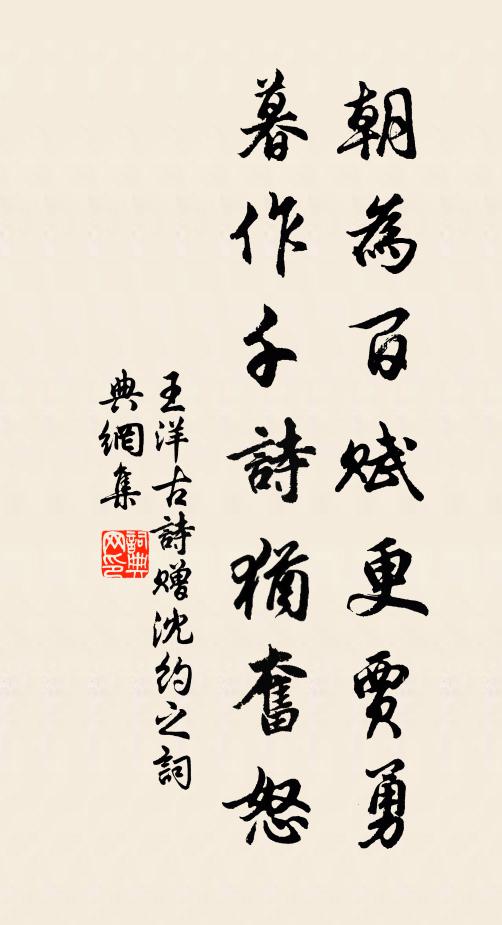 朝為百賦更賈勇
暮作千詩猶奮怒
王洋古詩贈沈約之詞
典網集
詞典網印